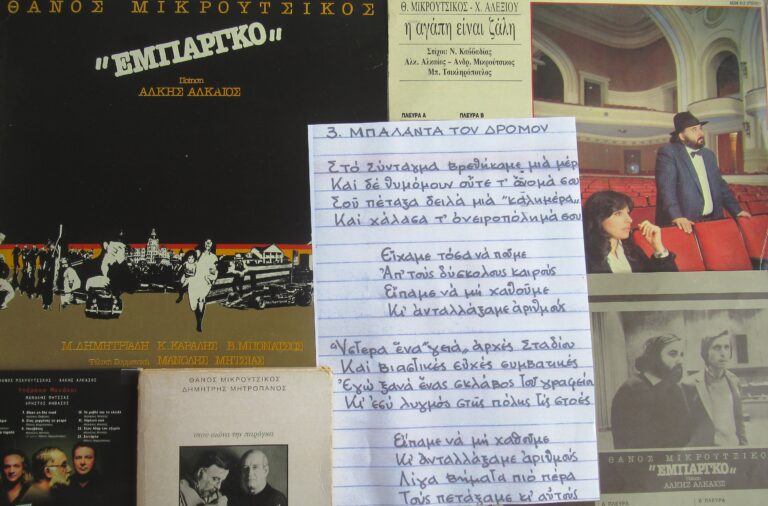 ΘΑΝΟΣ ΜΙΚΡΟΥΤΣΙΚΟΣ
"ΕΜΠΑΡΓΚΟ"
Ποίηση
ΑΛΚΗΣ ΑΛΚΑΙΟΣ
Μ. ΔΗΜΗΤΡΙΑΔΗ Κ. ΚΑΡΑΔΗΣ Β. ΜΠΟΝΑΤΣΟΣ
Φιλική Συμμετοχή ΜΑΝΩΛΗΣ ΜΗΤΣΙΑΣ
Θ. ΜΙΚΡΟΥΤΣΙΚΟΣ - Χ. ΑΛΕΞΙΟΥ
η αγάπη είναι ζάλη
Στίχοι: Ν. Καββαδίας
Αλκ. Αλκαίος - Ανδρ. Μικρούτσικος
Μπ. Τσικληρόπουλος
ΠΛΕΥΡΑ Α ΠΛΕΥΡΑ Β
3. ΜΠΑΛΑΝΤΑ ΤΟΥ ΔΡΟΜΟΥ
Στό Σύνταγμα βρεθήκαμε μιά μέρ
Καί δέ θυμόμουν οὔτε τ' ὄνομά σου
Σοῦ πέταξα δειλά μιά "καλημέρα"
Καί χάλασα τ' ὀνειροπόλημά σου
Εἴχαμε τόσα νά ποῦμε
Ἀπ' τούς δύσκολους καιρούς
Εἴπαμε νά μή χαθοῦμε
Κι' ἀνταλλάξαμε ἀριθμούς
Ὕστερα ἕνα "γειά" ἀρχές Σταδίου
Καί βιαστικές εὐχές συμβατικές
Ἐγώ ξανά ἕνας σκλάβος τοῦ γραφείου
Κι' ἐσύ λυγμός στῆς πόλης τίς στοές
Εἴπαμε νά μή χαθοῦμε
Κι' ἀνταλλάξαμε ἀριθμούς
Λίγα βήματα πιό πέρα
Τούς πετάξαμε κι' αὐτούς
ΘΑΝΟΣ ΜΙΚΡΟΥΤΣΙΚΟΣ - ΑΛΚΗΣ ΑΛΚΑΙΟΣ
ΜΑΝΩΛΗΣ ΜΗΤΣΙΑΣ
ΧΡΗΣΤΟΣ ΘΗΒΑΙΟΣ
ΘΑΝΟΣ ΜΙΚΡΟΥΤΣΙΚΟΣ
ΔΗΜΗΤΡΗΣ ΜΗΤΡΟΠΑΝΟΣ
στου αιώνα την παράγκα
ΘΑΝΟΣ ΜΙΚΡΟΥΤΣΙΚΟΣ
"ΕΜΠΑΡΓΚΟ"
Ποίηση
ΑΛΚΗΣ ΑΛΚΑΙΟΣ
Α ΠΛΕΥΡΑ Β ΠΛΕΥΡΑ